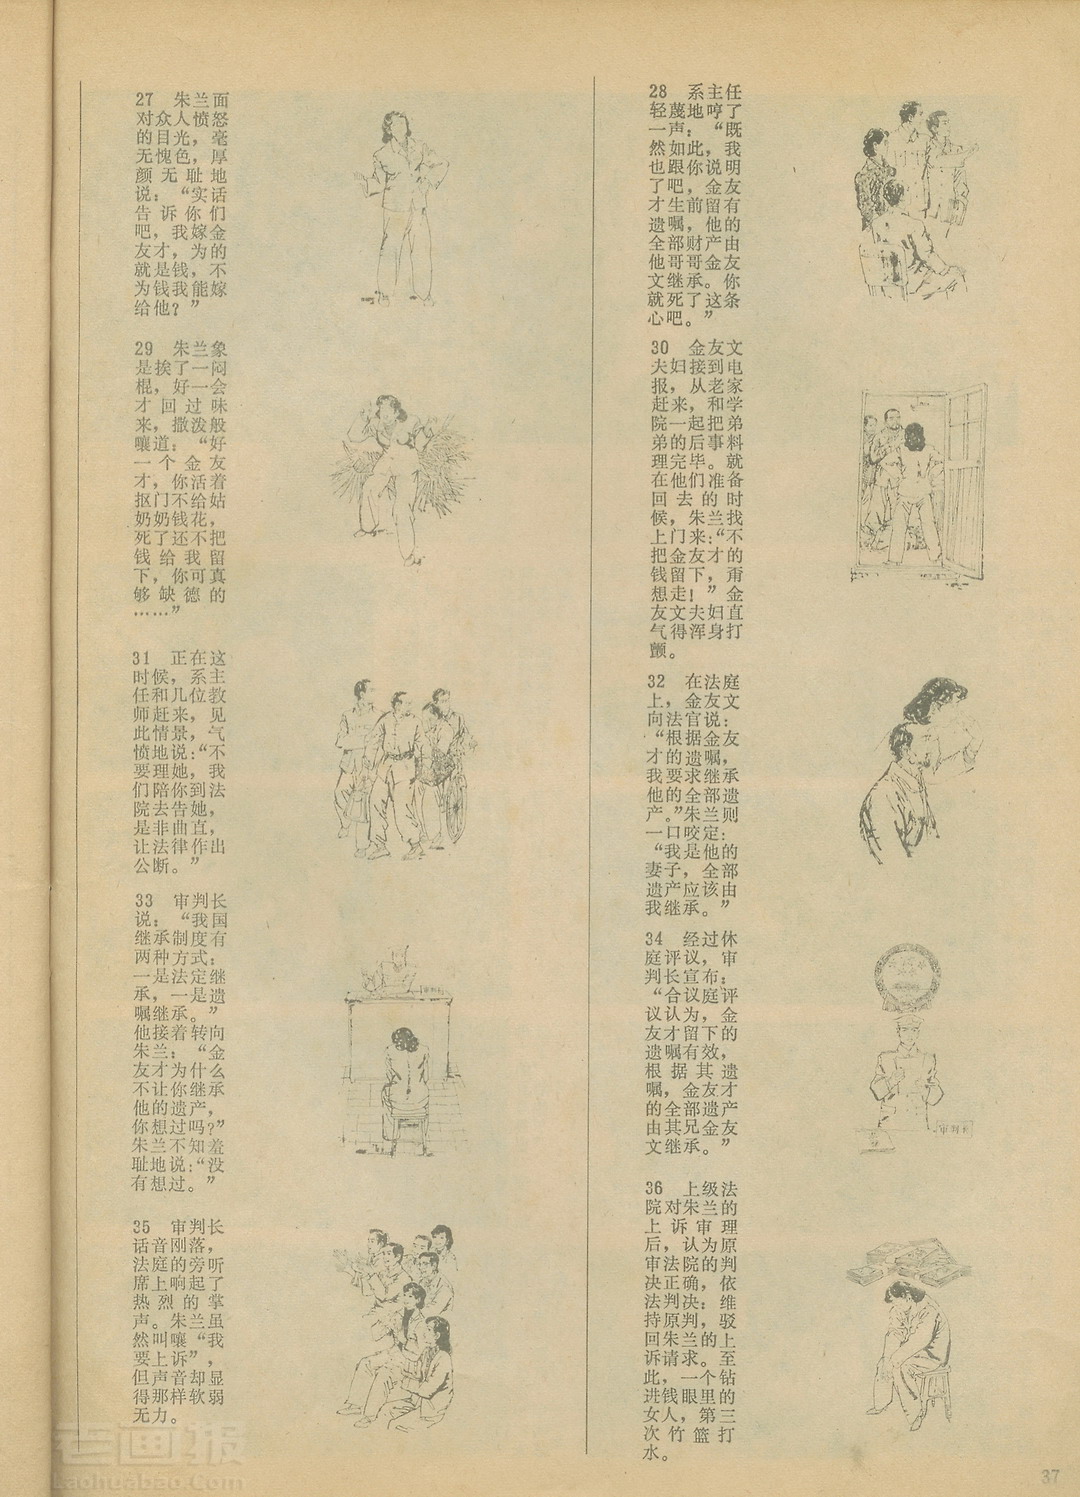 27　朱兰面
对众人愤怒
的目光，毫
无愧色，厚
颜无耻地
说：“实话
告诉你们
吧，我嫁金
友才，为的
就是钱，不
为钱我能嫁
给他？”
28　系主任
轻蔑地哼了
一声：“既
然如此，我
也跟你说明
了吧，金友
才生前留有
遗嘱，他的
全部财产由
他哥哥金友
文继承。你
就死了这条
心吧。”
29　朱兰象
是挨了一闷
棍，好一会
才回过味
来，撒泼般
嚷道：“好
一个金友
才，你活着
抠门不给姑
奶奶钱花，
死了还不把
钱给我留
下，你可真
够缺德的
……”
30　金友文
夫妇接到电
报，从老家
赶来，和学
院一起把弟
弟的后事料
理完毕。就
在他们准备
回去的时
候，朱兰找
上门来：“不
把金友才的
钱留下，甭
想走！”金
友文夫妇直
气得浑身打
颤。
31　正在这
时候，系主
任和几位教
师赶来，见
此情景，气
愤地说：“不
要理她，我
们陪你到法
院去告她，
是非曲直，
让法律作出
公断。”
32　在法庭
上，金友文
向法官说：
“根据金友
才的遗嘱，
我要求继承
他的全部遗
产。”朱兰则
一口咬定：
“我是他的
妻子，全部
遗产应该由
我继承。”
33　审判长
说：“我国
继承制度有
两种方式：
一是法定继
承，一是遗
嘱继承。”
他接着转向
朱兰：“金
友才为什么
不让你继承
他的遗产，
你想过吗？”
朱兰不知羞
耻地说：“没
有想过。”
34　经过休
庭评议，审
判长宣布：
“合议庭评
议认为，金
友才留下的
遗嘱有效，
根据其遗
嘱，金友才
的全部遗产
由其兄金友
文继承。”
审判长
35　审判长
话音刚落，
法庭的旁听
席上响起了
热烈的掌
声。朱兰虽
然叫嚷“我
要上诉”，
但声音却显
得那样软弱
无力。
36　上级法
院对朱兰的
上诉审理
后，认为原
审法院的判
决正确，依
法判决：维
持原判，驳
回朱兰的上
诉请求。至
此，一个钻
进钱眼里的
女人，第三
次竹篮打
水。
老画报
Laohuabao.Com
37